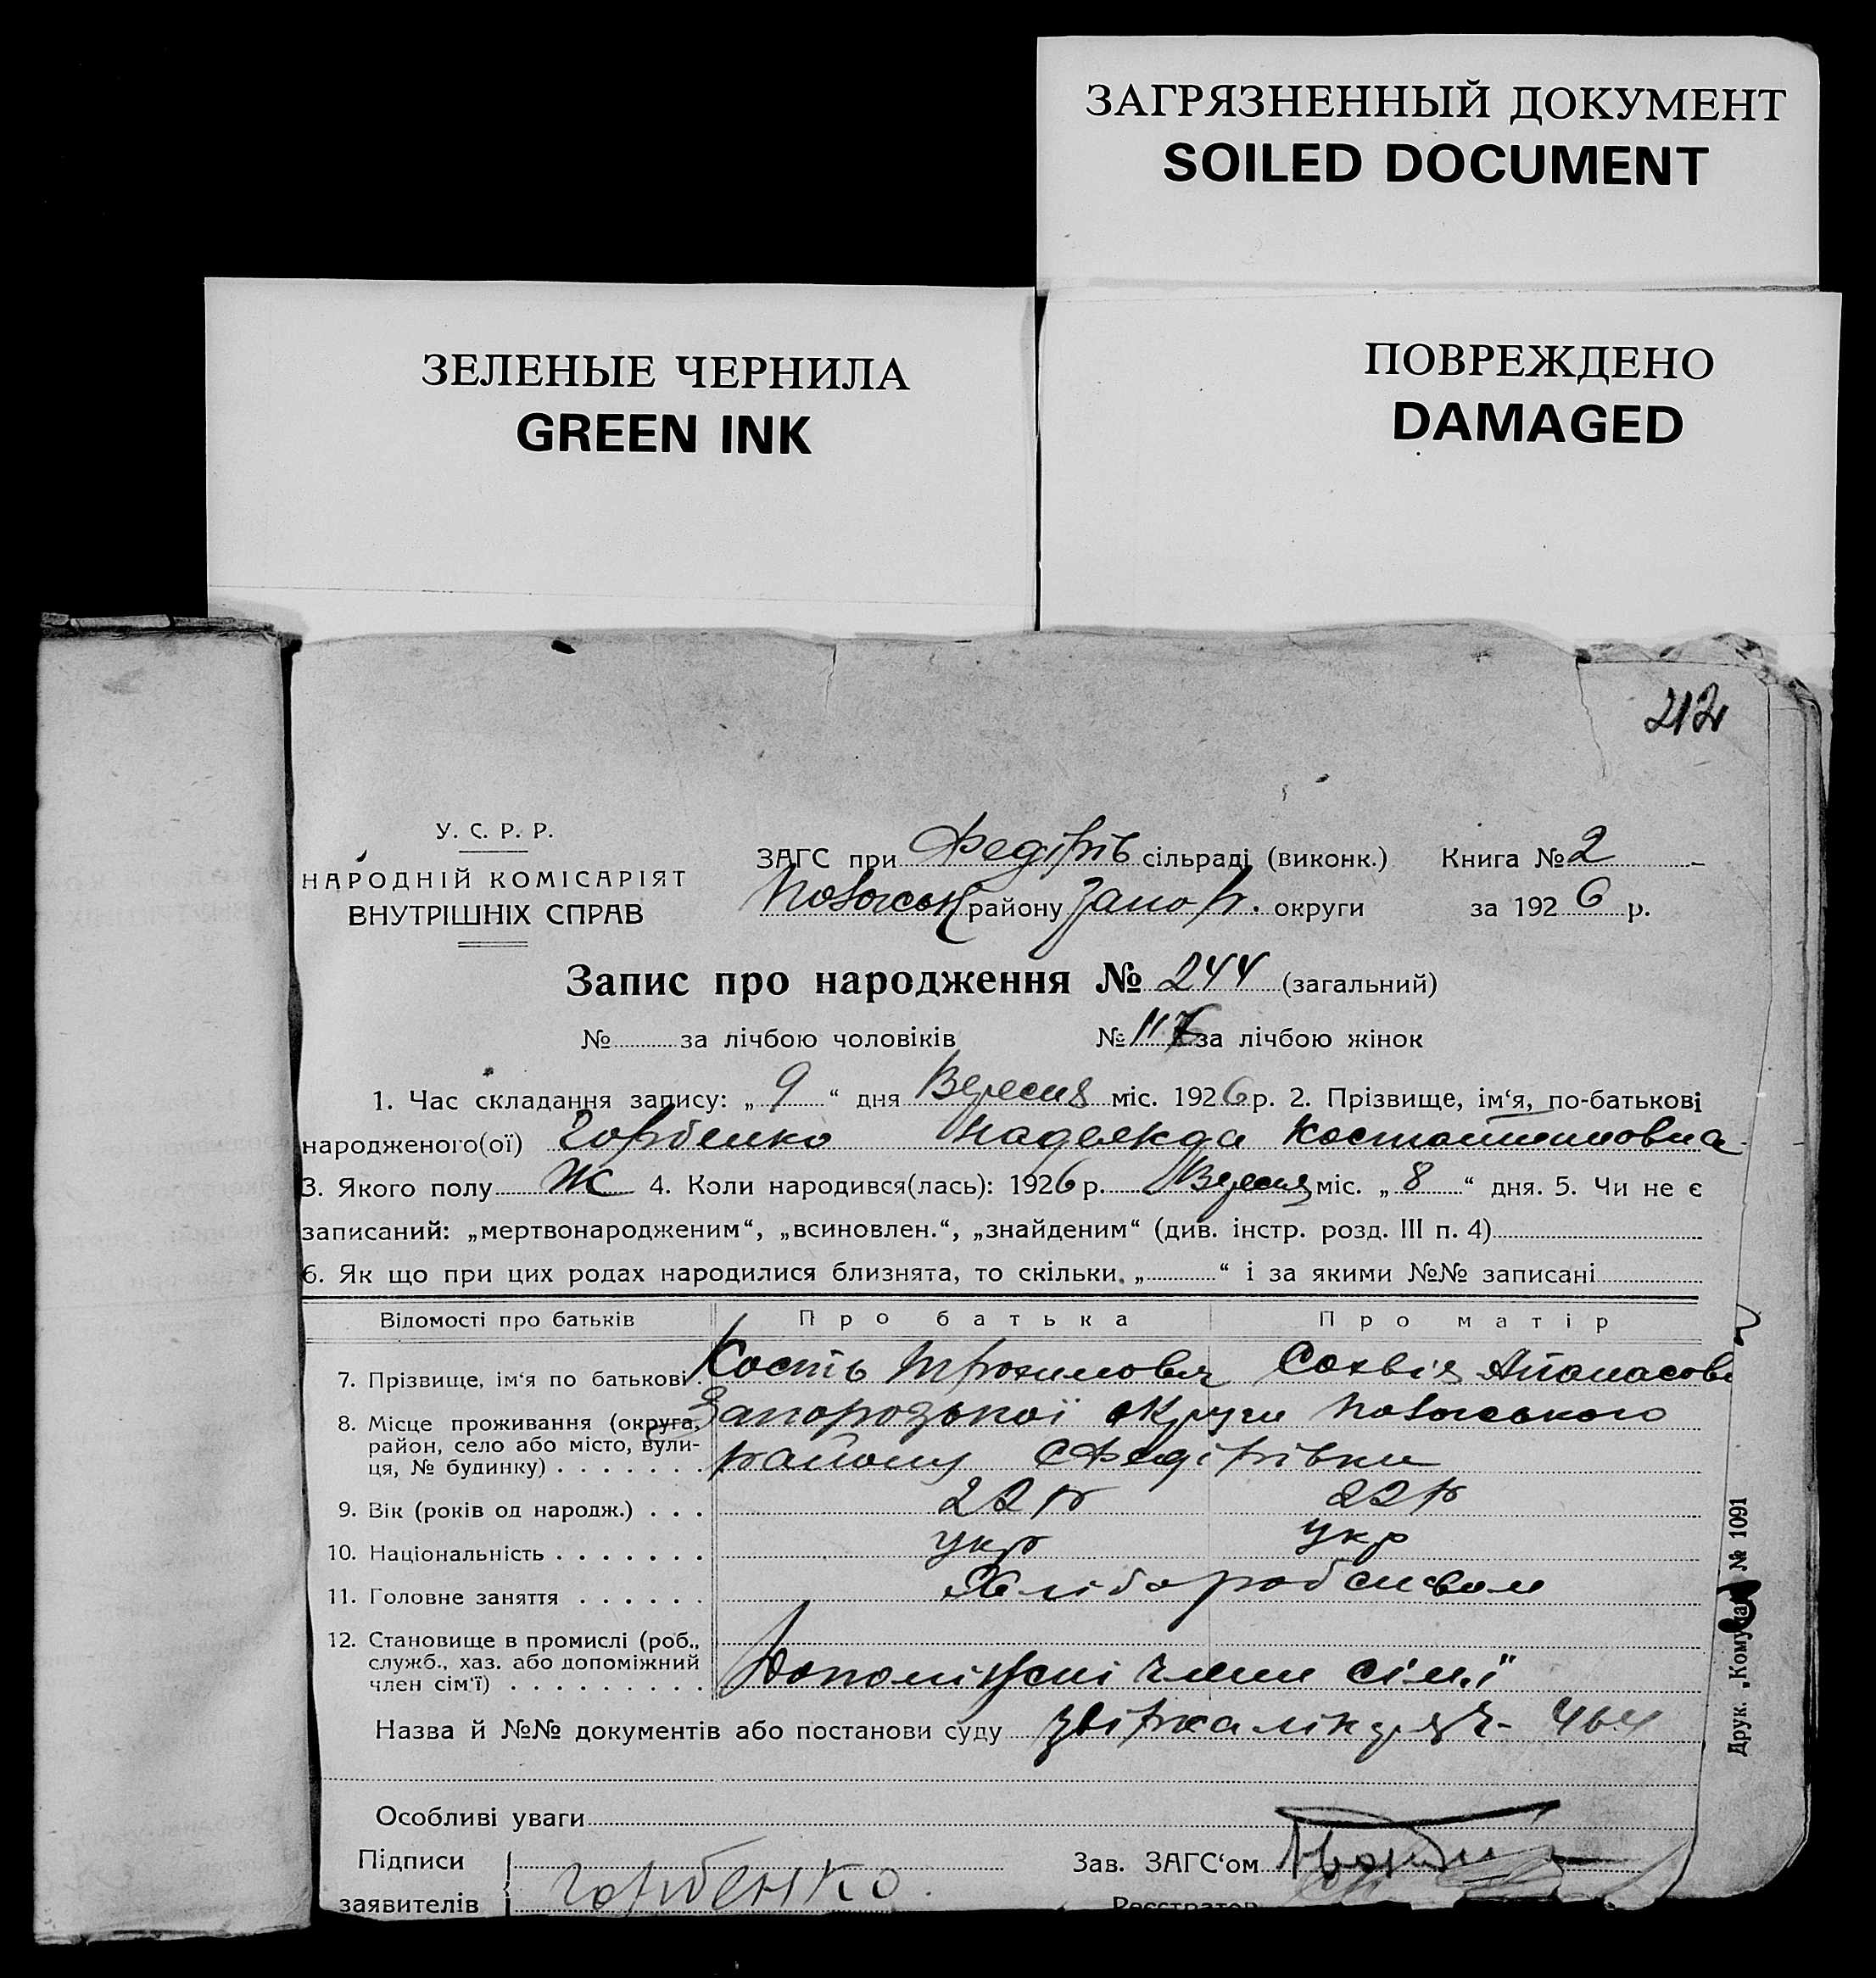 ЗАГРЯЗНЕННЫЙ ДОКУМЕНТ
SOILED DOCUMENT
ЗЕЛЕНЫЕ ЧЕРНИЛА
GREEN INK
ПОВРЕЖДЕНО
DAMAGED
212
У. С. Р. Р.
НАРОДНІЙ КОМІСАРІЯТ
ВНУТРІШНІХ СПРАВ
ЗАГС при Федірів сільраді (виконк.) Книга № 2
району Запор. округи за 1926 р.
Запис про народження № 244 (загальний)
№ за лічбою чоловіків № 117 за лічбою жінок
1. Час складання запису: „ 9 “ дня Вересня міс. 1926 р. 2. Прізвище, ім‘я, по-батькові
народженого(ої) Горбенко Надежда Костантиновна
3. Якого полу Ж 4. Коли народився(лась): 1926 р. Вересня міс. „ 8 “ дня. 5. Чи не є
записаний: „мертвонародженим“, „всиновлен.“, „знайденим“ (див. інстр. розд. III п. 4)
6. Як що при цих родах народилися близнята, то скільки „ “ і за якими №№ записані
Відомості про батьків Про батька Про матір
7. Прізвище, ім‘я по батькові Кость Трохимович Софвія Апанасов
8. Місце проживання (округа, Запорозької округи
район, село або місто, вули-
ця, № будинку) району Федірівки
9. Вік (років од народж.) 22 р 22 р
10. Національність укр укр
11. Головне заняття Хліборобством
12. Становище в промислі (роб.,
служб., хаз. або допоміжний
член сім‘ї) Допоміжні члени сім'ї
Назва й №№ документів або постанови суду 464
Особливі уваги
Підписи
заявителів Горбенко
Зав. ЗАГС‘ом
Реєстратор
Друк. „Комуна“ № 1091